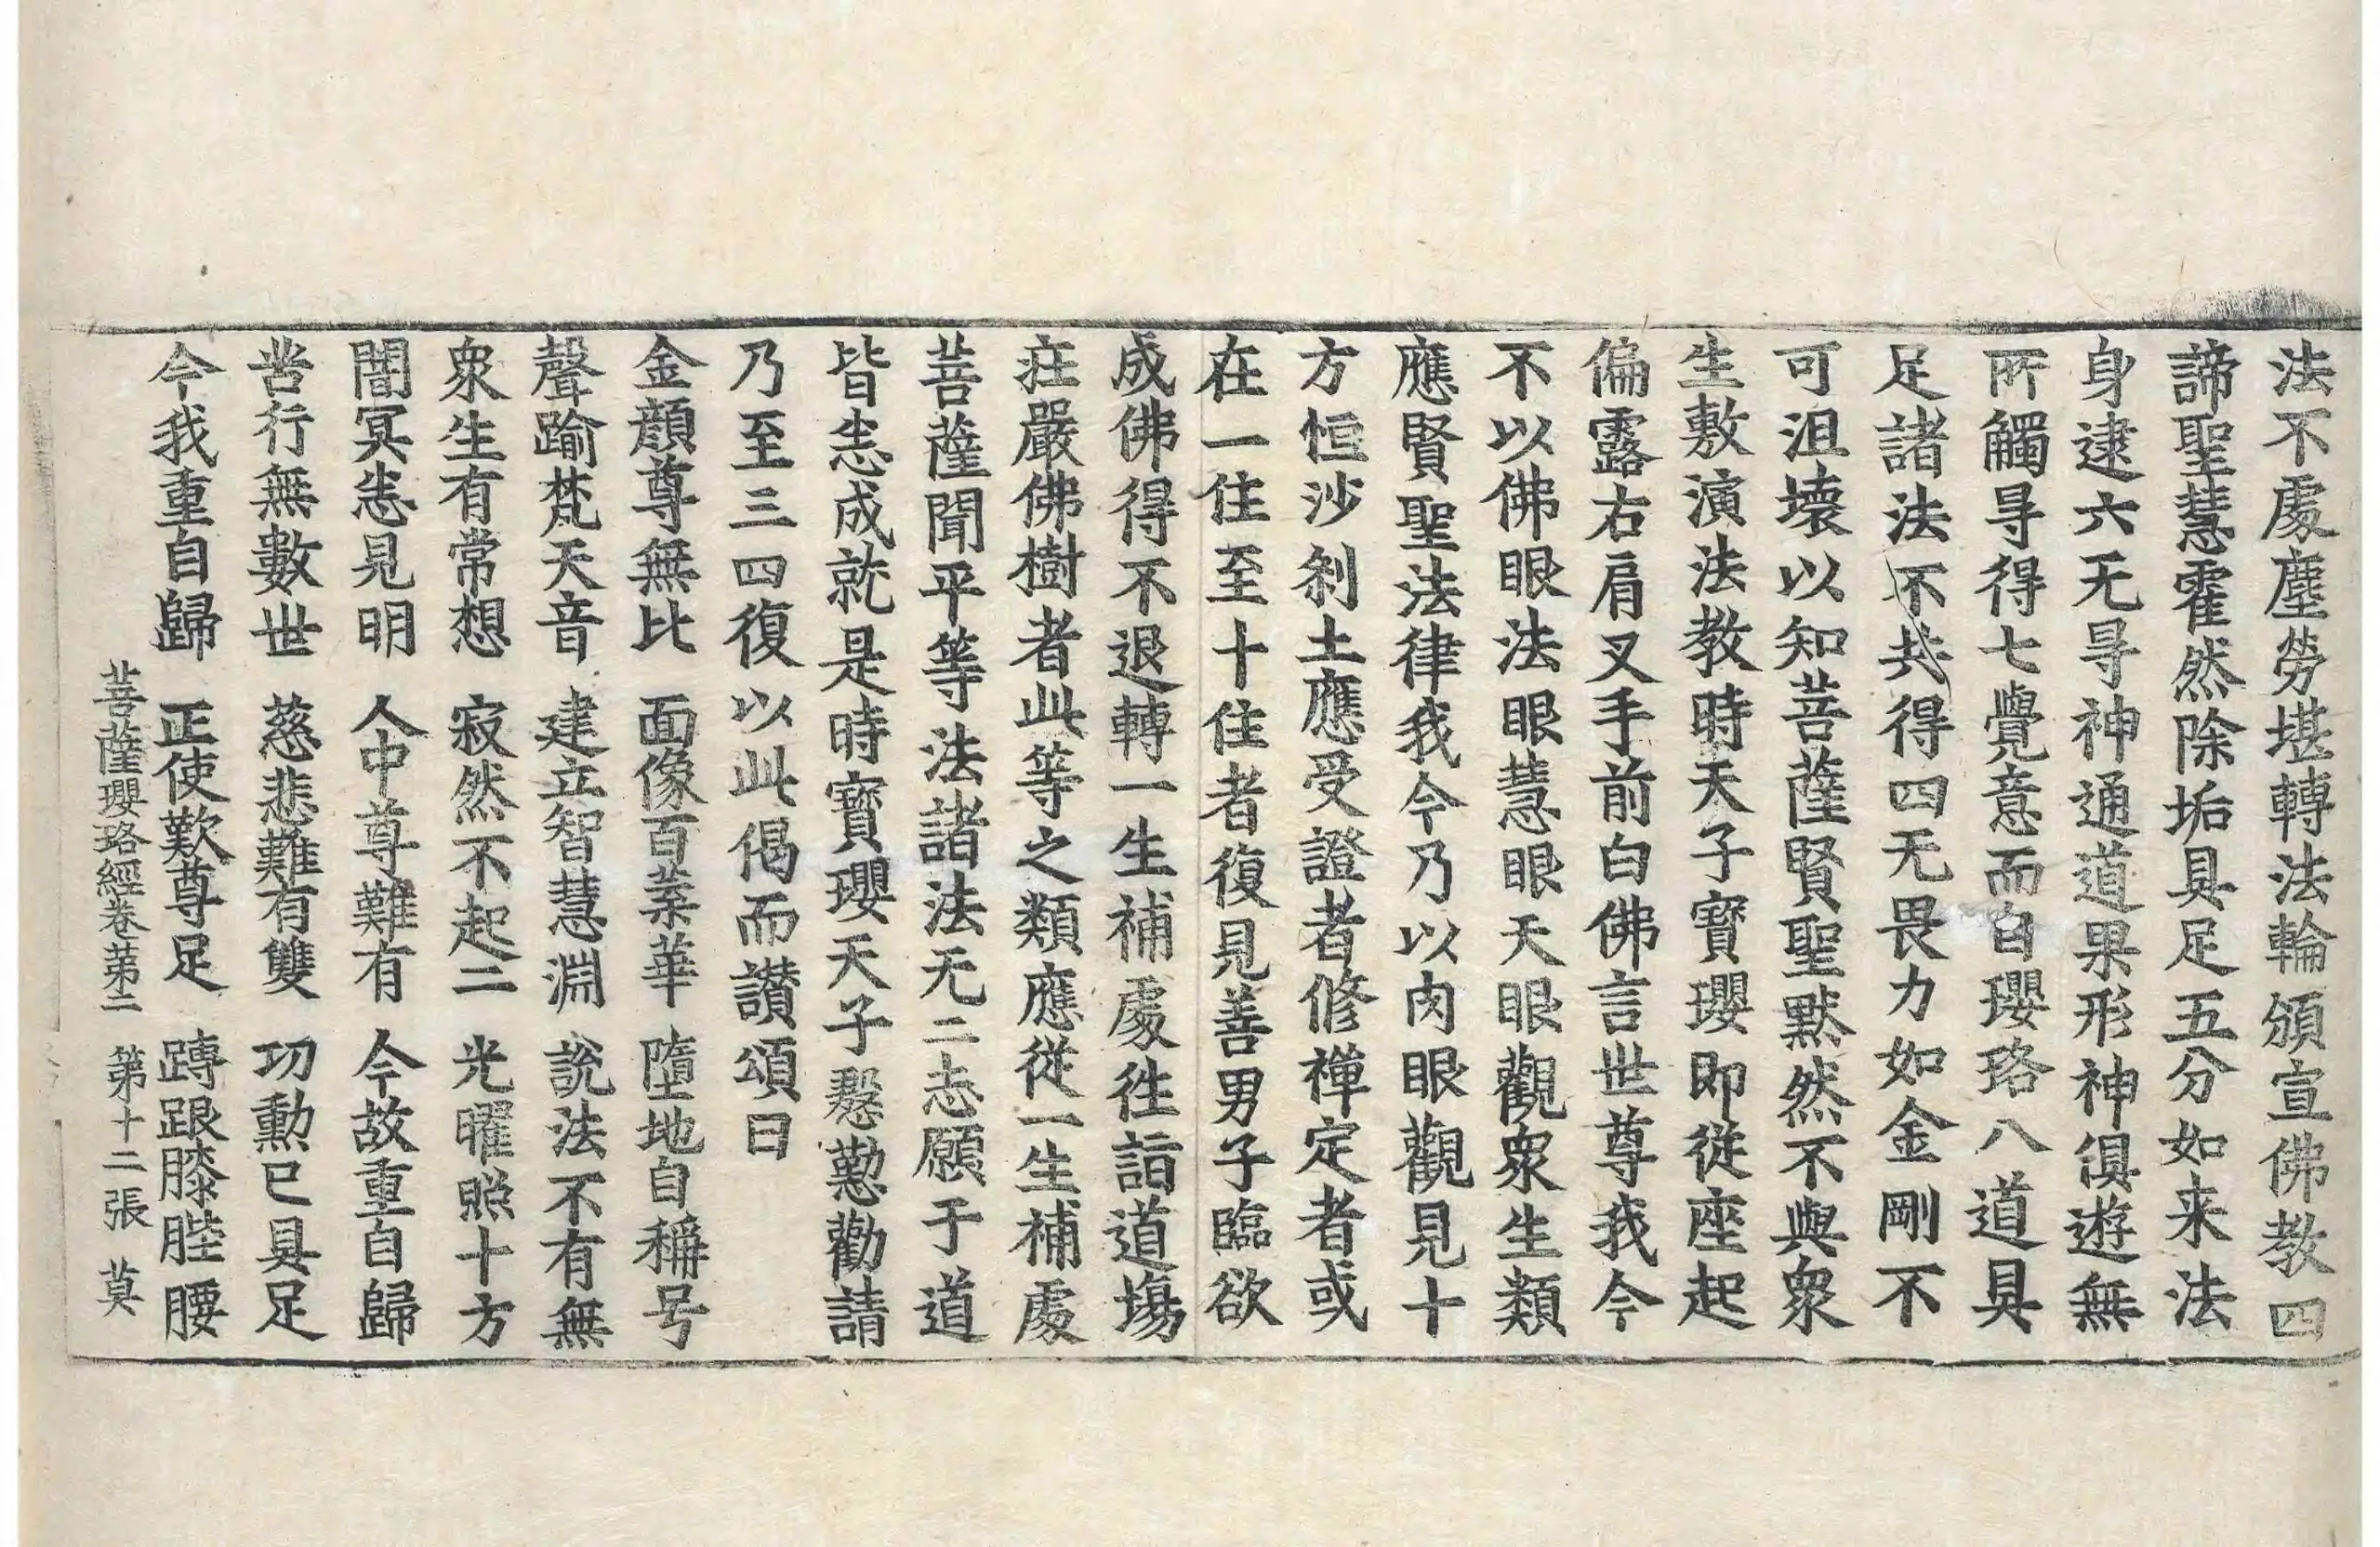 法不處塵勞堪轉法輪頒宣佛教四
諦聖慧霍然除垢具足五分如来法
身逮六无㝵神通道果形神俱遊無
所觸㝵得七覺意而自瓔珞八道具
足諸法不共得四无畏力如金剛不
可沮壞以知菩薩賢聖默然不與衆
生敷演法教時天子寶瓔即從座起
偏露右肩叉手前白佛言世尊我今
不以佛眼法眼慧眼天眼觀衆生類
應賢聖法律我今乃以肉眼觀見十
方恒沙刹土應受證者修禪定者或
在一住至十住者復見善男子臨欲
成佛得不退轉一生補處往詣道場
莊嚴佛樹者此等之類應從一生補處
菩薩聞平等法諸法无二志願于道
皆悉成就是時寶瓔天子慇懃勸請
乃至三四復以此偈而讃頌曰
金顏尊無比 面像百葉華 墮地自稱号
聲踰梵天音 建立智慧淵 說法不有無
衆生有常想 寂然不起二 光曜照十方
闇冥悉見明 人中尊難有 今故重自歸
苦行無數世 慈悲難有雙 功勳已具足
今我重自歸 正使歎尊足 䏝跟膝䏶腰
菩薩瓔珞經卷第二 第十二張 莫